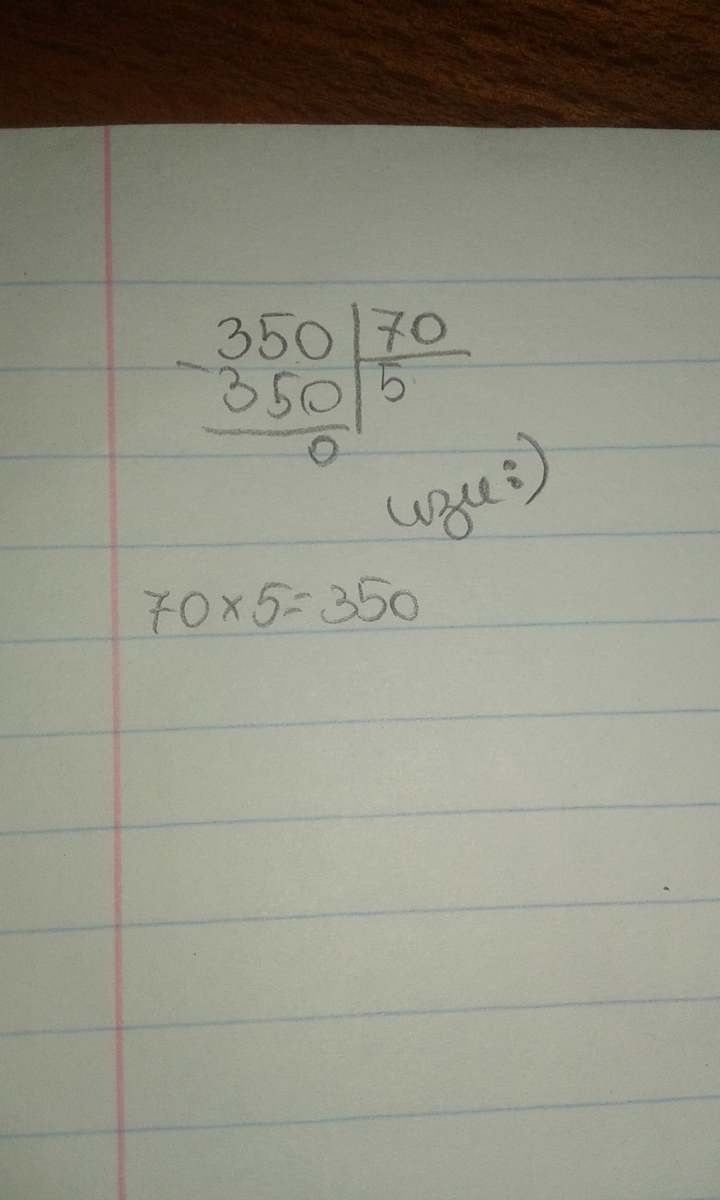 350 | 70
- 350 | 5
0
изи :)
70 × 5 = 350